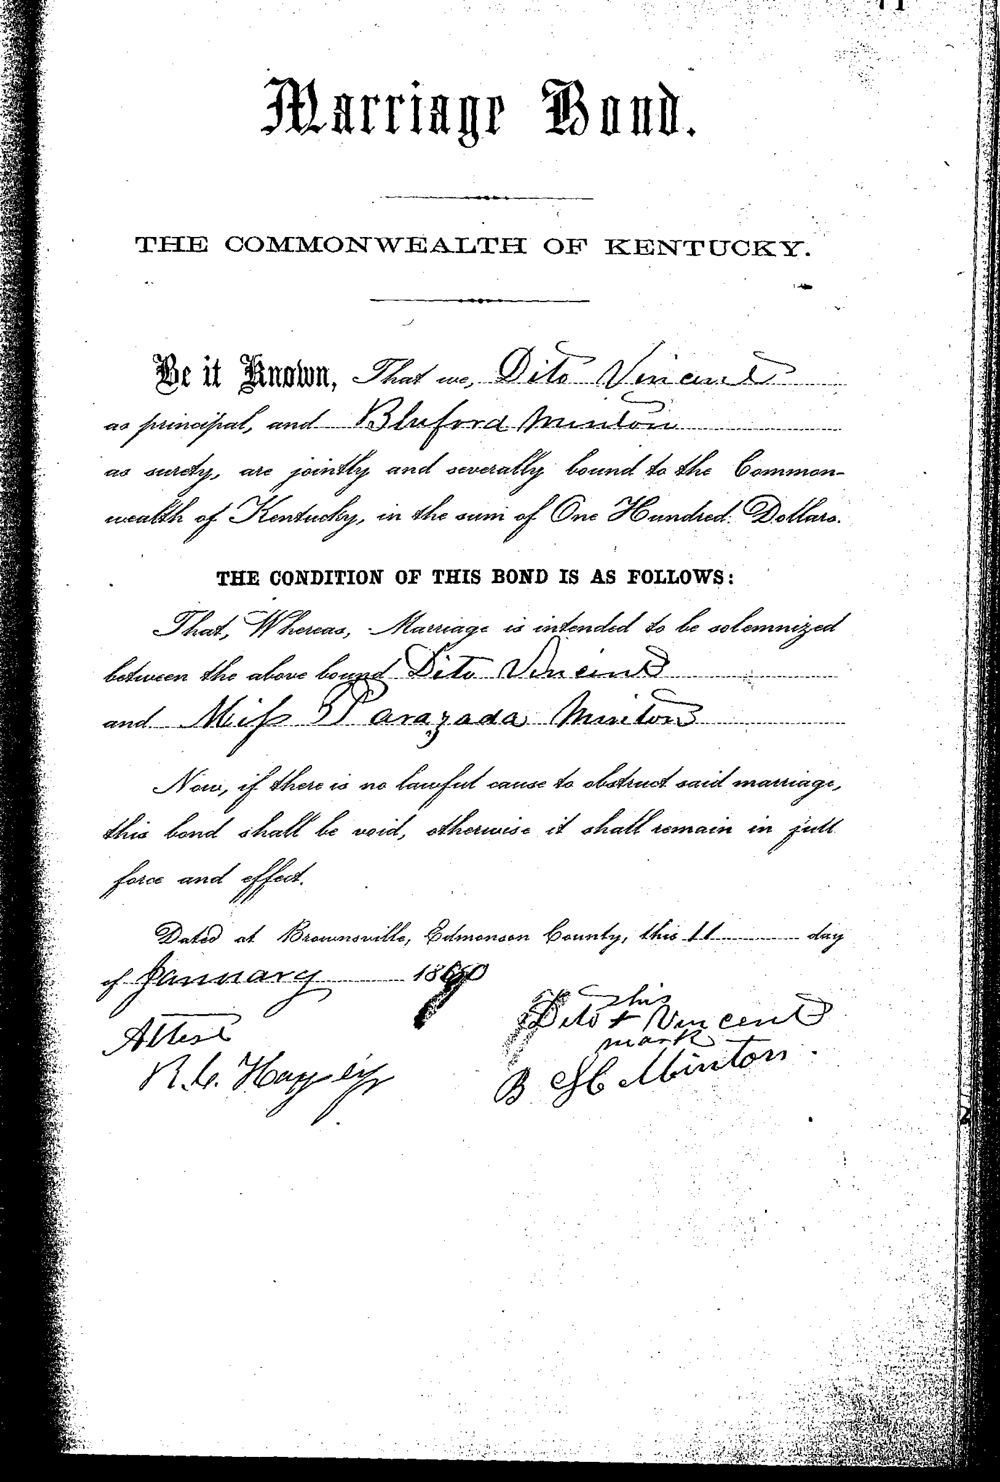 71
Marriage Bond.
THE COMMONWEALTH OF KENTUCKY.
Be it Known, That we, Dito Vincent
as principal, and Bluford Minton
as surety, are jointly and severally bound to the Common-
wealth of Kentucky, in the sum of One Hundred Dollars.
THE CONDITION OF THIS BOND IS AS FOLLOWS:
That, Whereas, Marriage is intended to be solemnized
between the above bound Dito Vincent
and Miss Parazada Minton
Now, if there is no lawful cause to obstruct said marriage,
this bond shall be void, otherwise it shall remain in full
force and effect.
Dated at Brownsville, Edmonson County, this 11 day
of January 18
his
Dito + Vincent
mark
Attest
B H Minton.